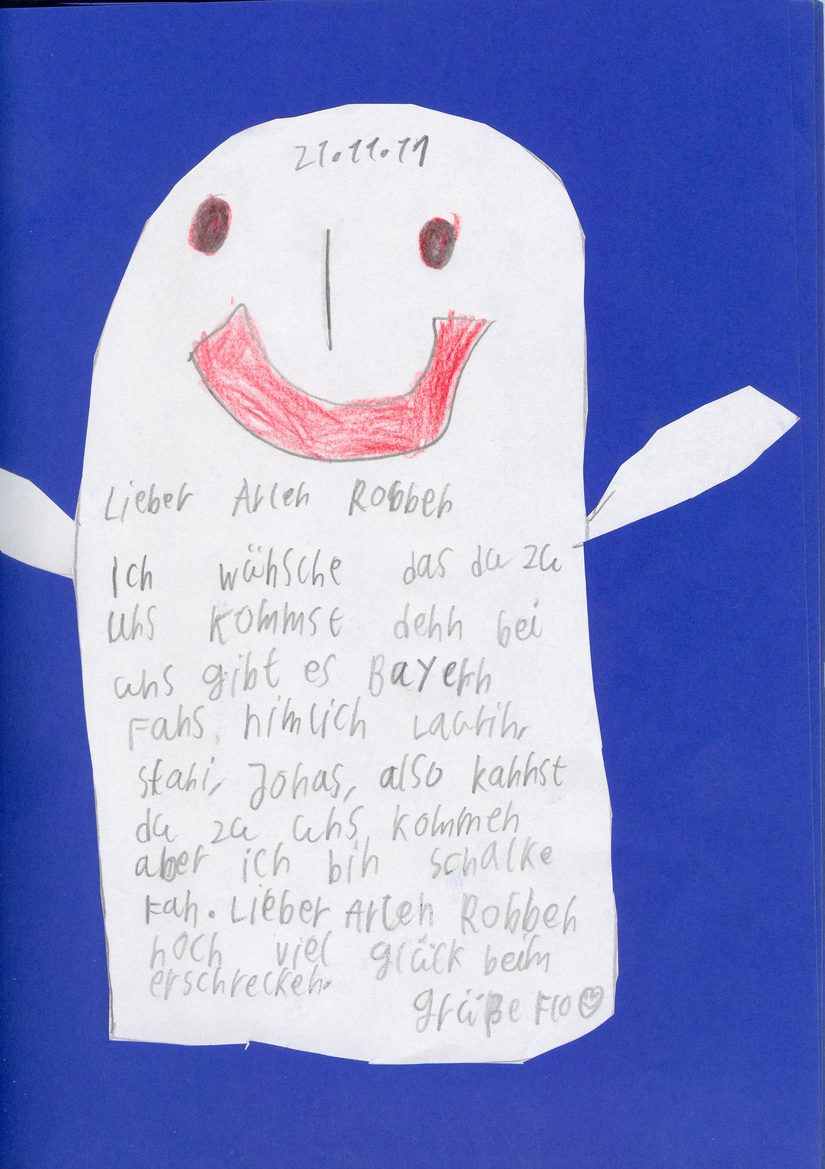 21.11.11
Lieber Arlen Robben
Ich wünsche das du zu
uns kommst denn bei
uns gibt es Bayern
Fans, nimlich Laurin,
stani, Jonas, also kannst
du zu uns kommen
aber ich bin schalke
Fan. Lieber Arlen Robben
noch viel glück beim
erschrecken.
grüße Flo